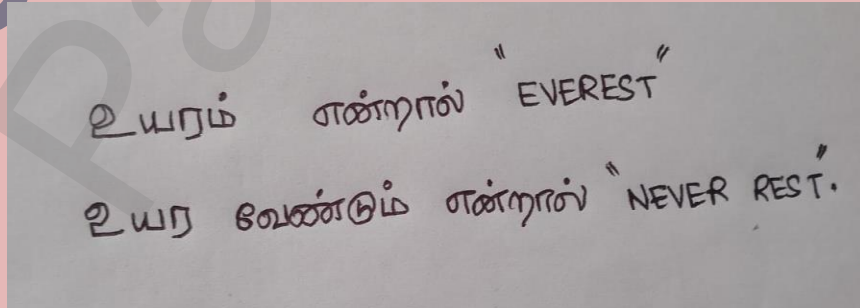 உயரம் என்றால் "EVEREST"
உயர வேண்டும் என்றால் "NEVER REST".